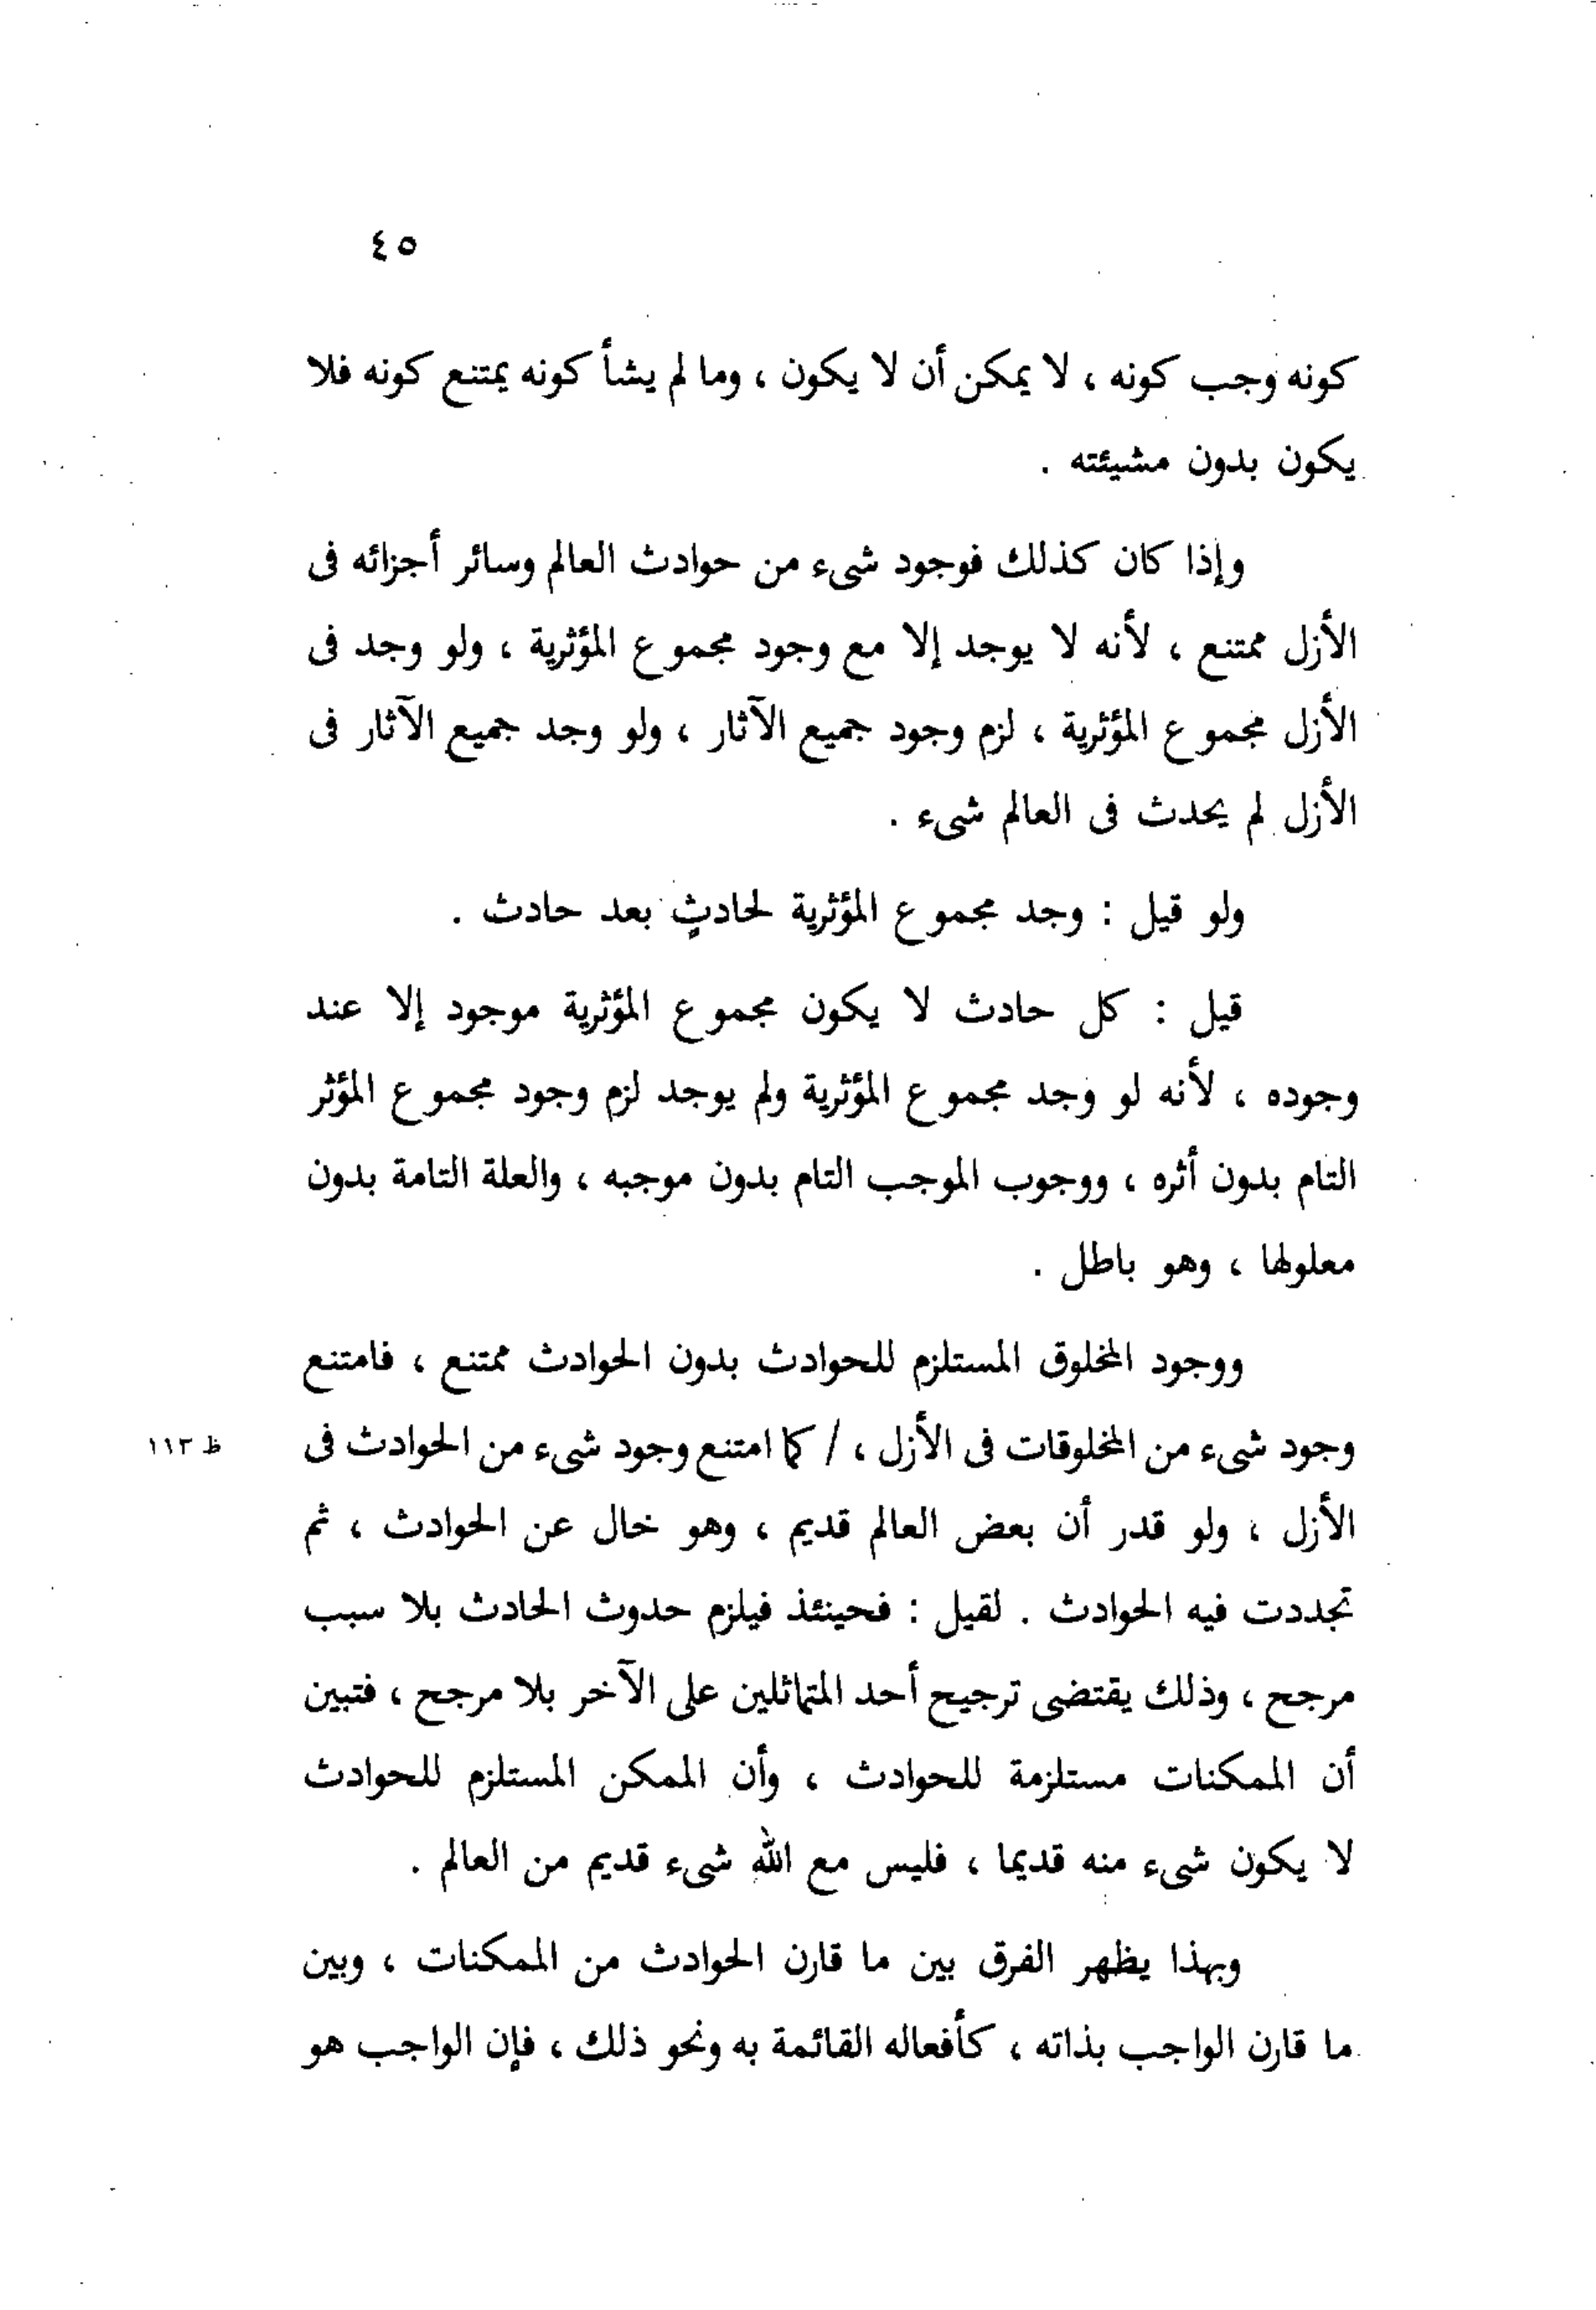 ٤٥
كونه وجب كونه ، لا يمكن أن لا يكون ، وما لم يشأ كونه يمتنع كونه فلا
يكون بدون مشيئته .
وإذا كان كذلك فوجود شىء من حوادث العالم وسائر أجزائه فى
الأزل ممتنع ، لأنه لا يوجد إلا مع وجود مجموع المؤثرية ، ولو وجد فى
الأزل مجموع المؤثرية ، لزم وجود جميع الآثار ، ولو وجد جميع الآثار فى
الأزل لم يحدث فى العالم شىء .
ولو قيل : وجد مجموع المؤثرية لحادثٍ بعد حادث .
قيل : كل حادث لا يكون مجموع المؤثرية موجود إلا عند
وجوده ، لأنه لو وجد مجموع المؤثرية ولم يوجد لزم وجود مجموع المؤثر
التام بدون أثره ، ووجوب الموجب التام بدون موجبه ، والعلة التامة بدون
معلولها ، وهو باطل .
ووجود المخلوق المستلزم للحوادث بدون الحوادث ممتنع ، فامتنع
وجود شىء من المخلوقات فى الأزل ، / كما امتنع وجود شىء من الحوادث فى
ظ ١١٣
الأزل ، ولو قدر أن بعض العالم قديم ، وهو خال عن الحوادث ، ثم
تجددت فيه الحوادث . لقيل : فحينئذ فيلزم حدوث الحادث بلا سبب
مرجح ، وذلك يقتضى ترجيح أحد المتماثلين على الآخر بلا مرجح ، فتبين
أن الممكنات مستلزمة للحوادث ، وأن الممكن المستلزم للحوادث
لا يكون شىء منه قديما ، فليس مع الله شىء قديم من العالم .
وبهذا يظهر الفرق بين ما قارن الحوادث من الممكنات ، وبين
ما قارن الواجب بذاته ، كأفعاله القائمة به ونحو ذلك ، فإن الواجب هو